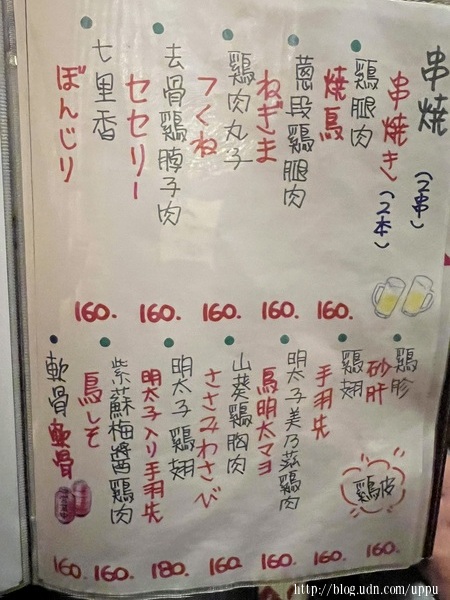 串燒
串焼き
(2串)
(2本)
鷄腿肉
焼鳥
160.
蔥段鷄腿肉
ねぎま
160.
鷄肉丸子
つくね
160.
去骨鷄脖子肉
セセリー
160.
七里香
ぼんじり
160.
鷄胗
砂肝
160.
鷄皮
鷄翅
手羽先
160.
明太子美乃滋鷄肉
鳥明太マヨ
160.
山葵鷄胸肉
ささみわさび
160.
明太子鷄翅
明太子入り手羽先
180.
紫蘇梅醬鷄肉
鳥しそ
160.
軟骨
軟骨
160.
http://blog.udn.com/uppu